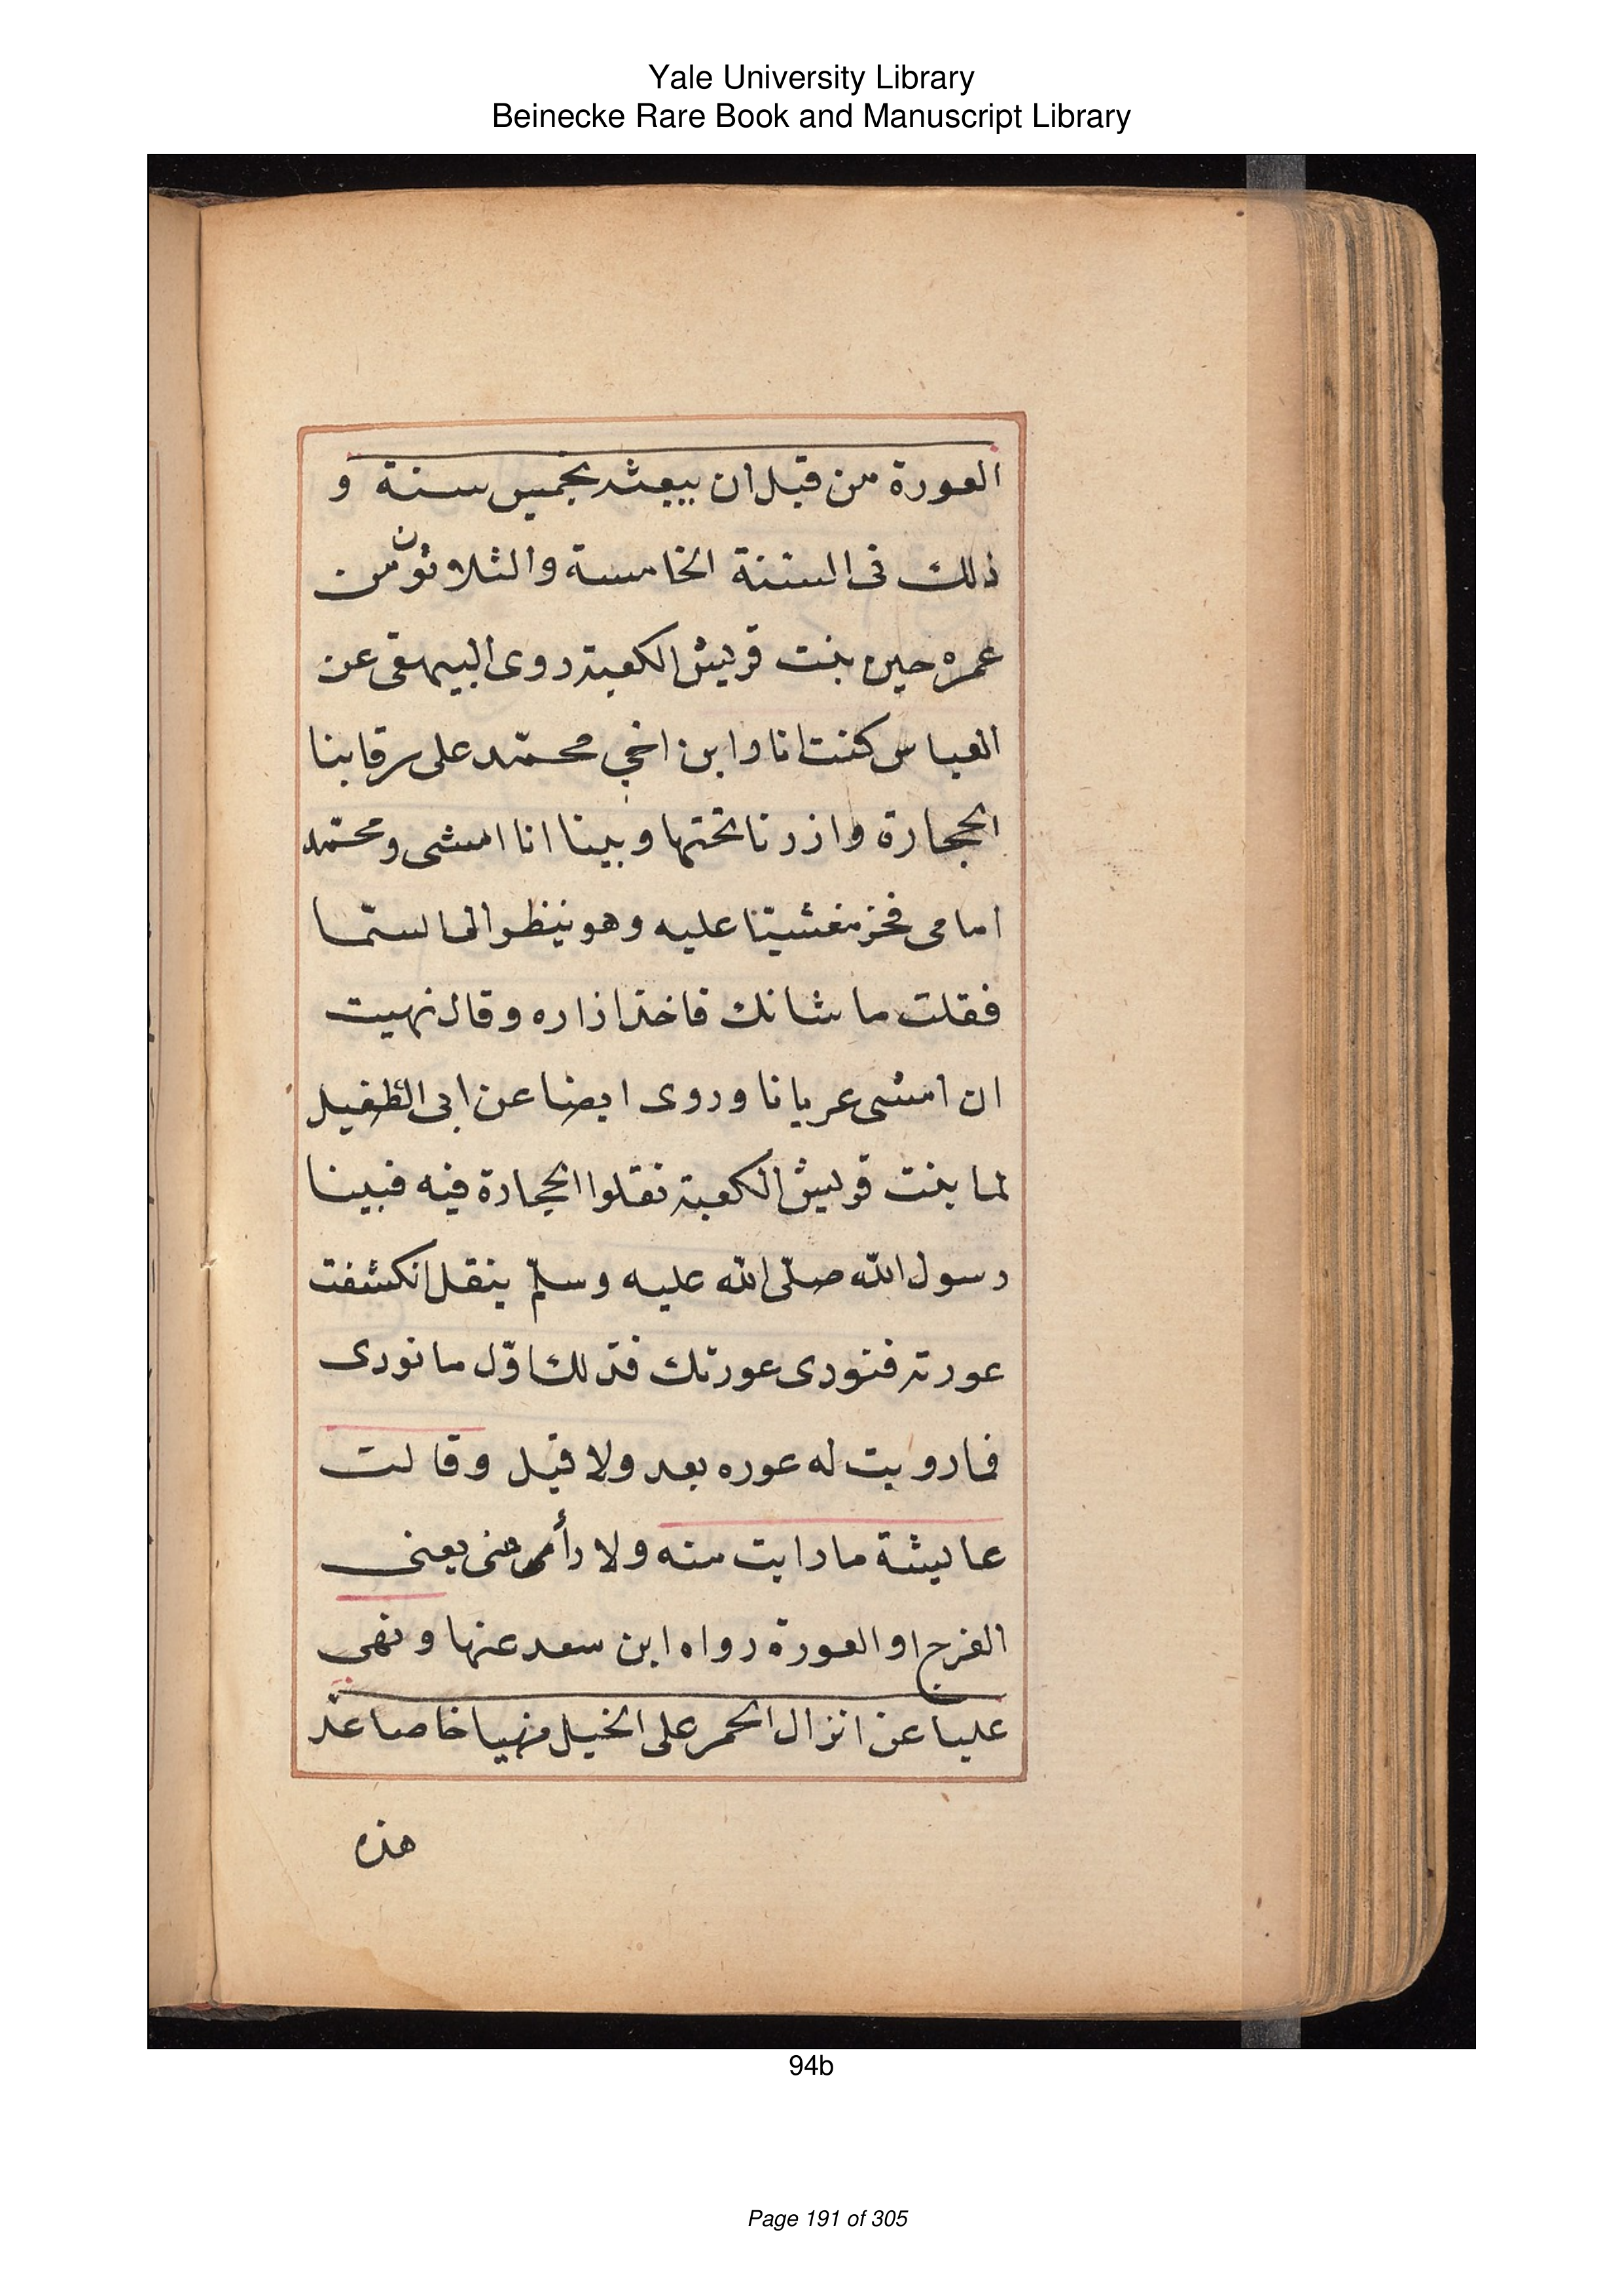 Yale University Library
Beinecke Rare Book and Manuscript Library
العورة من قبل ان يبعثه بخميس سنة و
ذلك فى السنة الخامسة والثلاثون من
عمره حين بنت قريش الكعبة روى البيهقى عن
العباس كنت انا وابن اخي محمّد على رقابنا
الحجارة وازرنا تحتها وبينا انا امشى ومحمّد
امامى فخر مغشيّا عليه وهو ينظر الى السّما
فقلت ما شانك فاخذ ازاره وقال نهيت
ان امشى عريانا وروى ايضا عن ابى الطفيل
لما بنت قريش الكعبة نقلوا الحجارة فيه فبينا
رسول الله صلّى الله عليه وسلّم ينقل انكشفت
عورته فنودى عورتك فذلك اوّل ما نودى
فما رويت له عوره بعد ولا قبل وقالت
عايشة ما رايت منه ولا رأى منى يعنى
الفرج او العورة رواه ابن سعد عنها ونهى
عليا عن انزال الحمر على الخيل نهيا خاصا عند
هذه
94b
Page 191 of 305